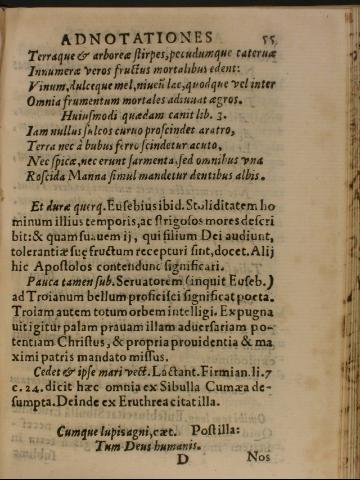 ADNOTATIONES 55
Terraque & arboreæ stirpes, pecudumque cateruæ
Innumeræ veros fructus mortalibus edent:
Vinum, dulceque mel, niueũ lac, quodque vel inter
Omnia frumentum mortales adiuuat ægros.
Huiusmodi quædam canit lib. 3.
Iam nullus sulcos curuo proscindet aratro,
Terra nec à bubus ferro scindetur acuto,
Nec spicæ, nec erunt sarmenta, sed omnibus vna
Roscida Manna simul mandetur dentibus albis.
Et duræ querq. Eusebius ibid. Stoliditatem ho
minum illius temporis, ac strigosos mores descri
bit: & quam suauem ij, qui filium Dei audiunt,
tolerantiæ suę fructum recepturi sint, docet. Alij
hic Apostolos contendunt significari.
Pauca tamen sub. Seruatorem (inquit Euseb.)
ad Troianum bellum proficisci significat poeta.
Troiam autem totum orbem intelligi. Expugna
uit igitur palam prauam illam aduersariam po-
tentiam Christus, & propria prouidentia & ma
ximi patris mandato missus.
Cedet & ipse mari vect. Lactant. Firmian. li. 7
c. 24. dicit hæc omnia ex Sibulla Cumæa de-
sumpta. Deinde ex Eruthrea citat illa.
Cumque lupis agni, cæt. Post illa:
Tum Deus humanis.
D Nos